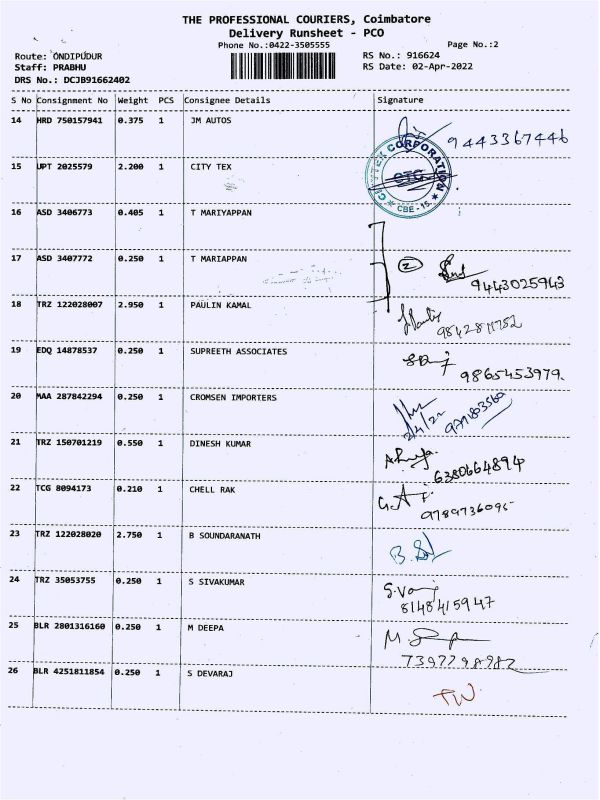 THE PROFESSIONAL COURIERS, Coimbatore
Delivery Runsheet - PCO
Phone No.:0422-3505555 Page No.:2
Route: ONDIPUDUR RS No.: 916624
Staff: PRABHU RS Date: 02-Apr-2022
DRS No.: DCJB91662402
S No Consignment No Weight PCS Consignee Details Signature
14 HRD 750157941 0.375 1 JM AUTOS 9443367446
15 UPT 2025579 2.200 1 CITY TEX
CORPORATION
CBE - 15.
16 ASD 3406773 0.405 1 T MARIYAPPAN
17 ASD 3407772 0.250 1 T MARIAPPAN 2 9443025943
18 TRZ 122028007 2.950 1 PAULIN KAMAL
19 EDQ 14878537 0.250 1 SUPREETH ASSOCIATES 9865453979
20 MAA 287842294 0.250 1 CROMSEN IMPORTERS 2/4/22
21 TRZ 150701219 0.550 1 DINESH KUMAR 6380664894
22 TCG 8094173 0.210 1 CHELL RAK 9789736095
23 TRZ 122028020 2.750 1 B SOUNDARANATH
24 TRZ 35053755 0.250 1 S SIVAKUMAR 8148415947
25 BLR 2801316160 0.250 1 M DEEPA 7397798982
26 BLR 4251811854 0.250 1 S DEVARAJ